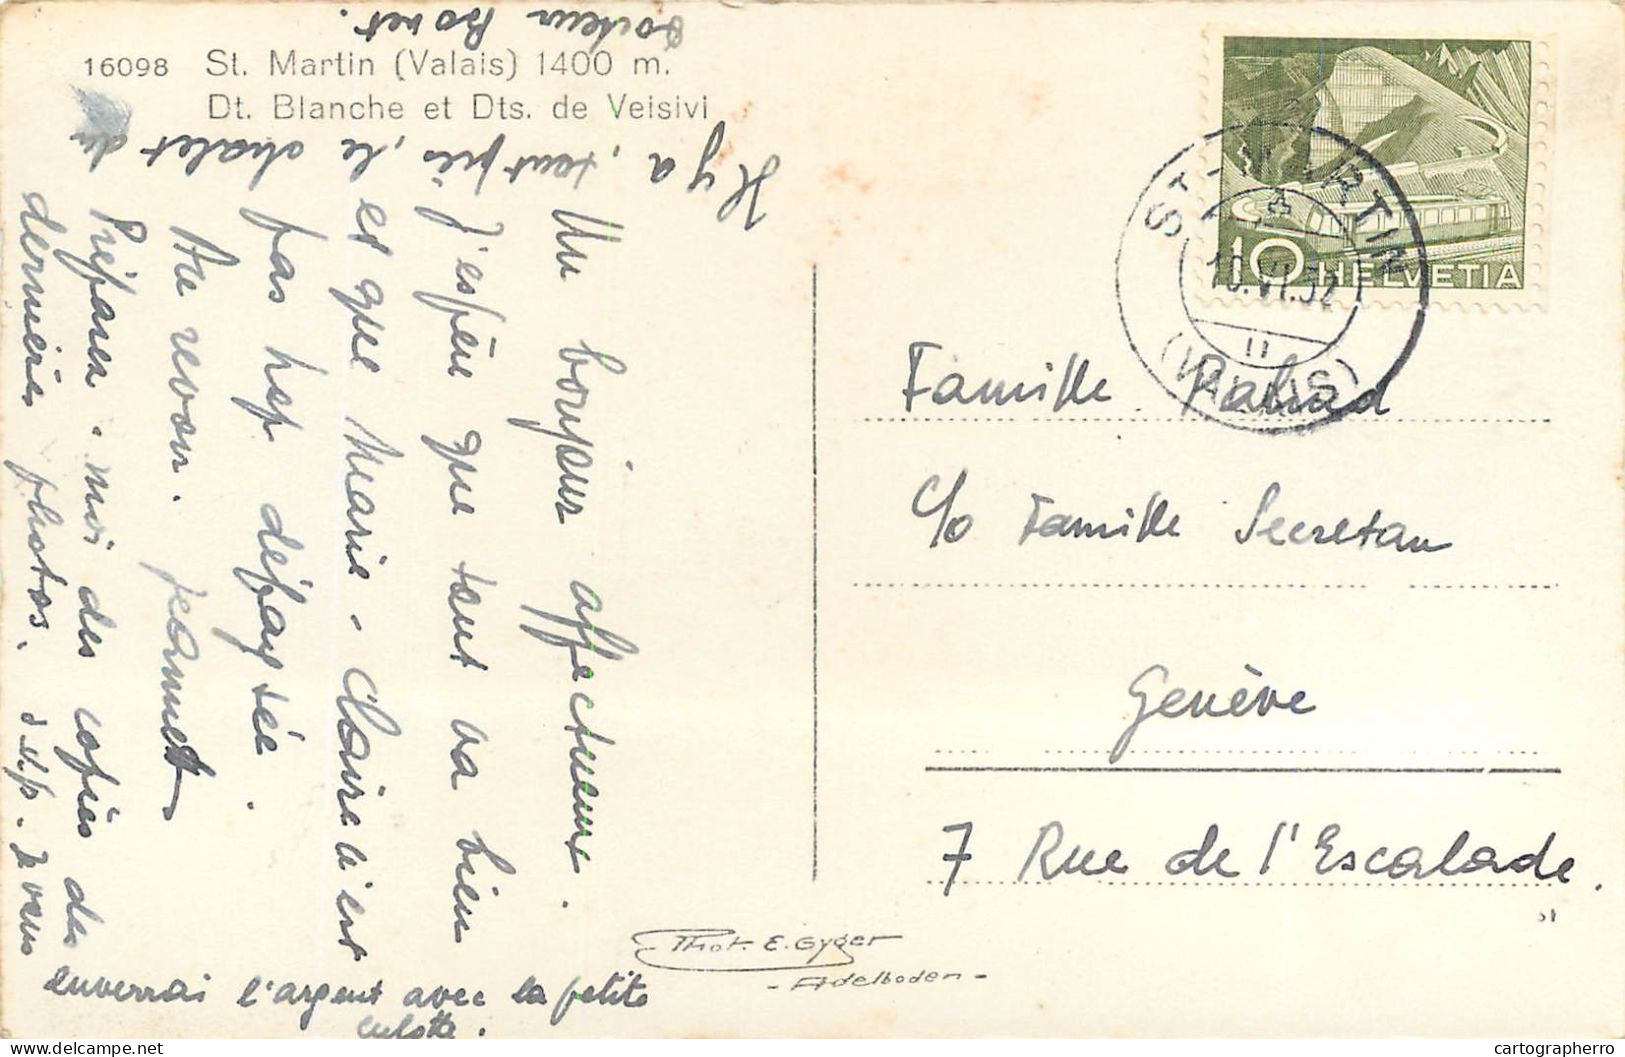 16098 St. Martin (Valais) 1400 m.
Dt. Blanche et Dts. de Veisivi
Un bonjour affectueux.
J'espère que tout va bien
et que Marie-Claire n'est
pas trop défaytée.
Au revoir. Jeannet
Préparez-moi des copies des
dernières photos. s.v.p. Je vous
enverrai l'argent avec la petite
culotte.
Il y a, tout près, le chalet du
docteur Bonet.
HELVETIA
10
ST-MARTIN
10.VI.52
(VALAIS)
Famille Rahad
c/o Famille Secretan
Genève
7 Rue de l'Escalade.
Phot. E. Gyger
- Adelboden -
delcampe.net
cartographerro